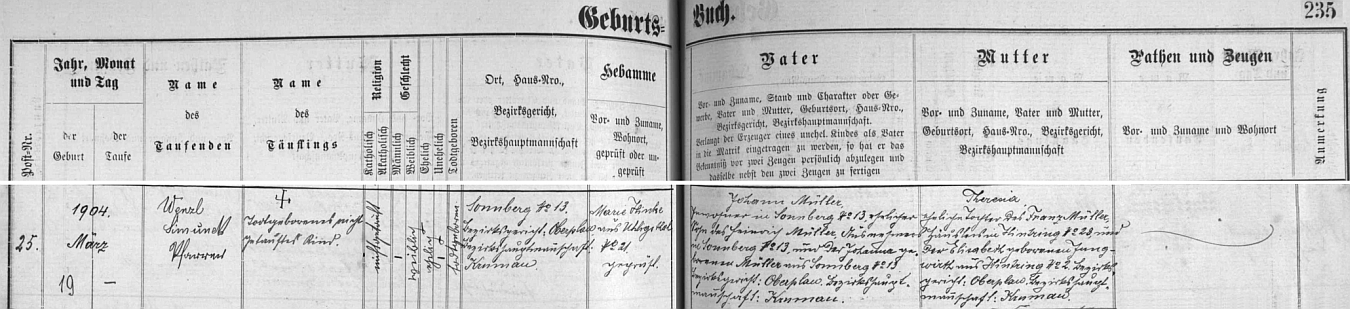 Geburts-Buch.
235
Post-Nr.
Jahr, Monat
und Tag
der
Geburt
der
Taufe
Name
des
Taufenden
Name
des
Täuflings
Religion
Katholisch
Akatholisch
Geschlecht
Männlich
Weiblich
Ehelich
Unehelich
Todtgeboren
Ort, Haus-Nro.,
Bezirksgericht,
Bezirkshauptmannschaft
Hebamme
Vor- und Zuname,
Wohnort,
geprüft oder un-
geprüft
Vater
Vor- und Zuname, Stand und Charakter oder Ge-
werbe, Vater und Mutter, Geburtsort, Haus-Nro.,
Bezirksgericht, Bezirkshauptmannschaft.
Verlangt der Erzeuger eines unehel. Kindes als Vater
in die Matrik eingetragen zu werden, so hat er das
Bekenntniß vor zwei Zeugen persönlich abzulegen und
dasselbe nebst den zwei Zeugen zu fertigen
Mutter
Vor- und Zuname, Vater und Mutter,
Geburtsort, Haus-Nro., Bezirksgericht,
Bezirkshauptmannschaft
Pathen und Zeugen
Vor- und Zuname und Wohnort
Anmerkung
25.
1904.
März
19 –
Wenzl
Simandl
Pfarrer
Todtgeborenes nicht
getauftes Kind.
weiblich
ehelich
todtgeboren
Sonnberg No 13.
Bezirksgericht: Oberplan
Bezirkshauptmannschaft:
Krumau.
Marie
aus
No 21
geprüft.
Johann Müller,
in Sonnberg No 13, ehelicher
Sohn des Heinrich Müller, Ausnehmers
in Sonnberg No 13, und der Johanna ge-
borenen Müller aus Sonnberg No 13
Bezirksgericht: Oberplan, Bezirkshaupt-
mannschaft: Krumau.
Theresia
eheliche Tochter des Franz Müller,
Häuslers in Hintring No 23, und
der Elisabeth geborenen Jung-
wirth aus Hintring No 2, Bezirks-
gericht: Oberplan, Bezirkshaupt-
mannschaft: Krumau.